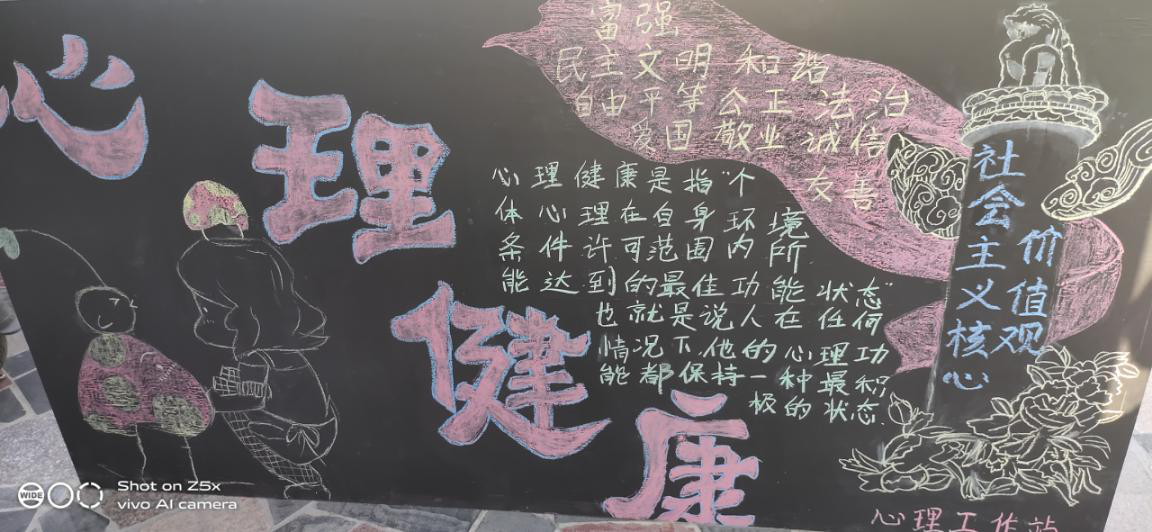 心理健康
富强
民主文明 和谐
自由平等公正法治
爱国敬业诚信
友善
心理健康是指"个
体心理在自身环境
条件许可范围内所
能达到的最佳功能状态"
也就是说人在任何
情况下他的心理功
能都保持一种最积
极的状态.
社会主义核心
价值观
心理工作站
WIDE
Shot on Z5x
vivo AI camera